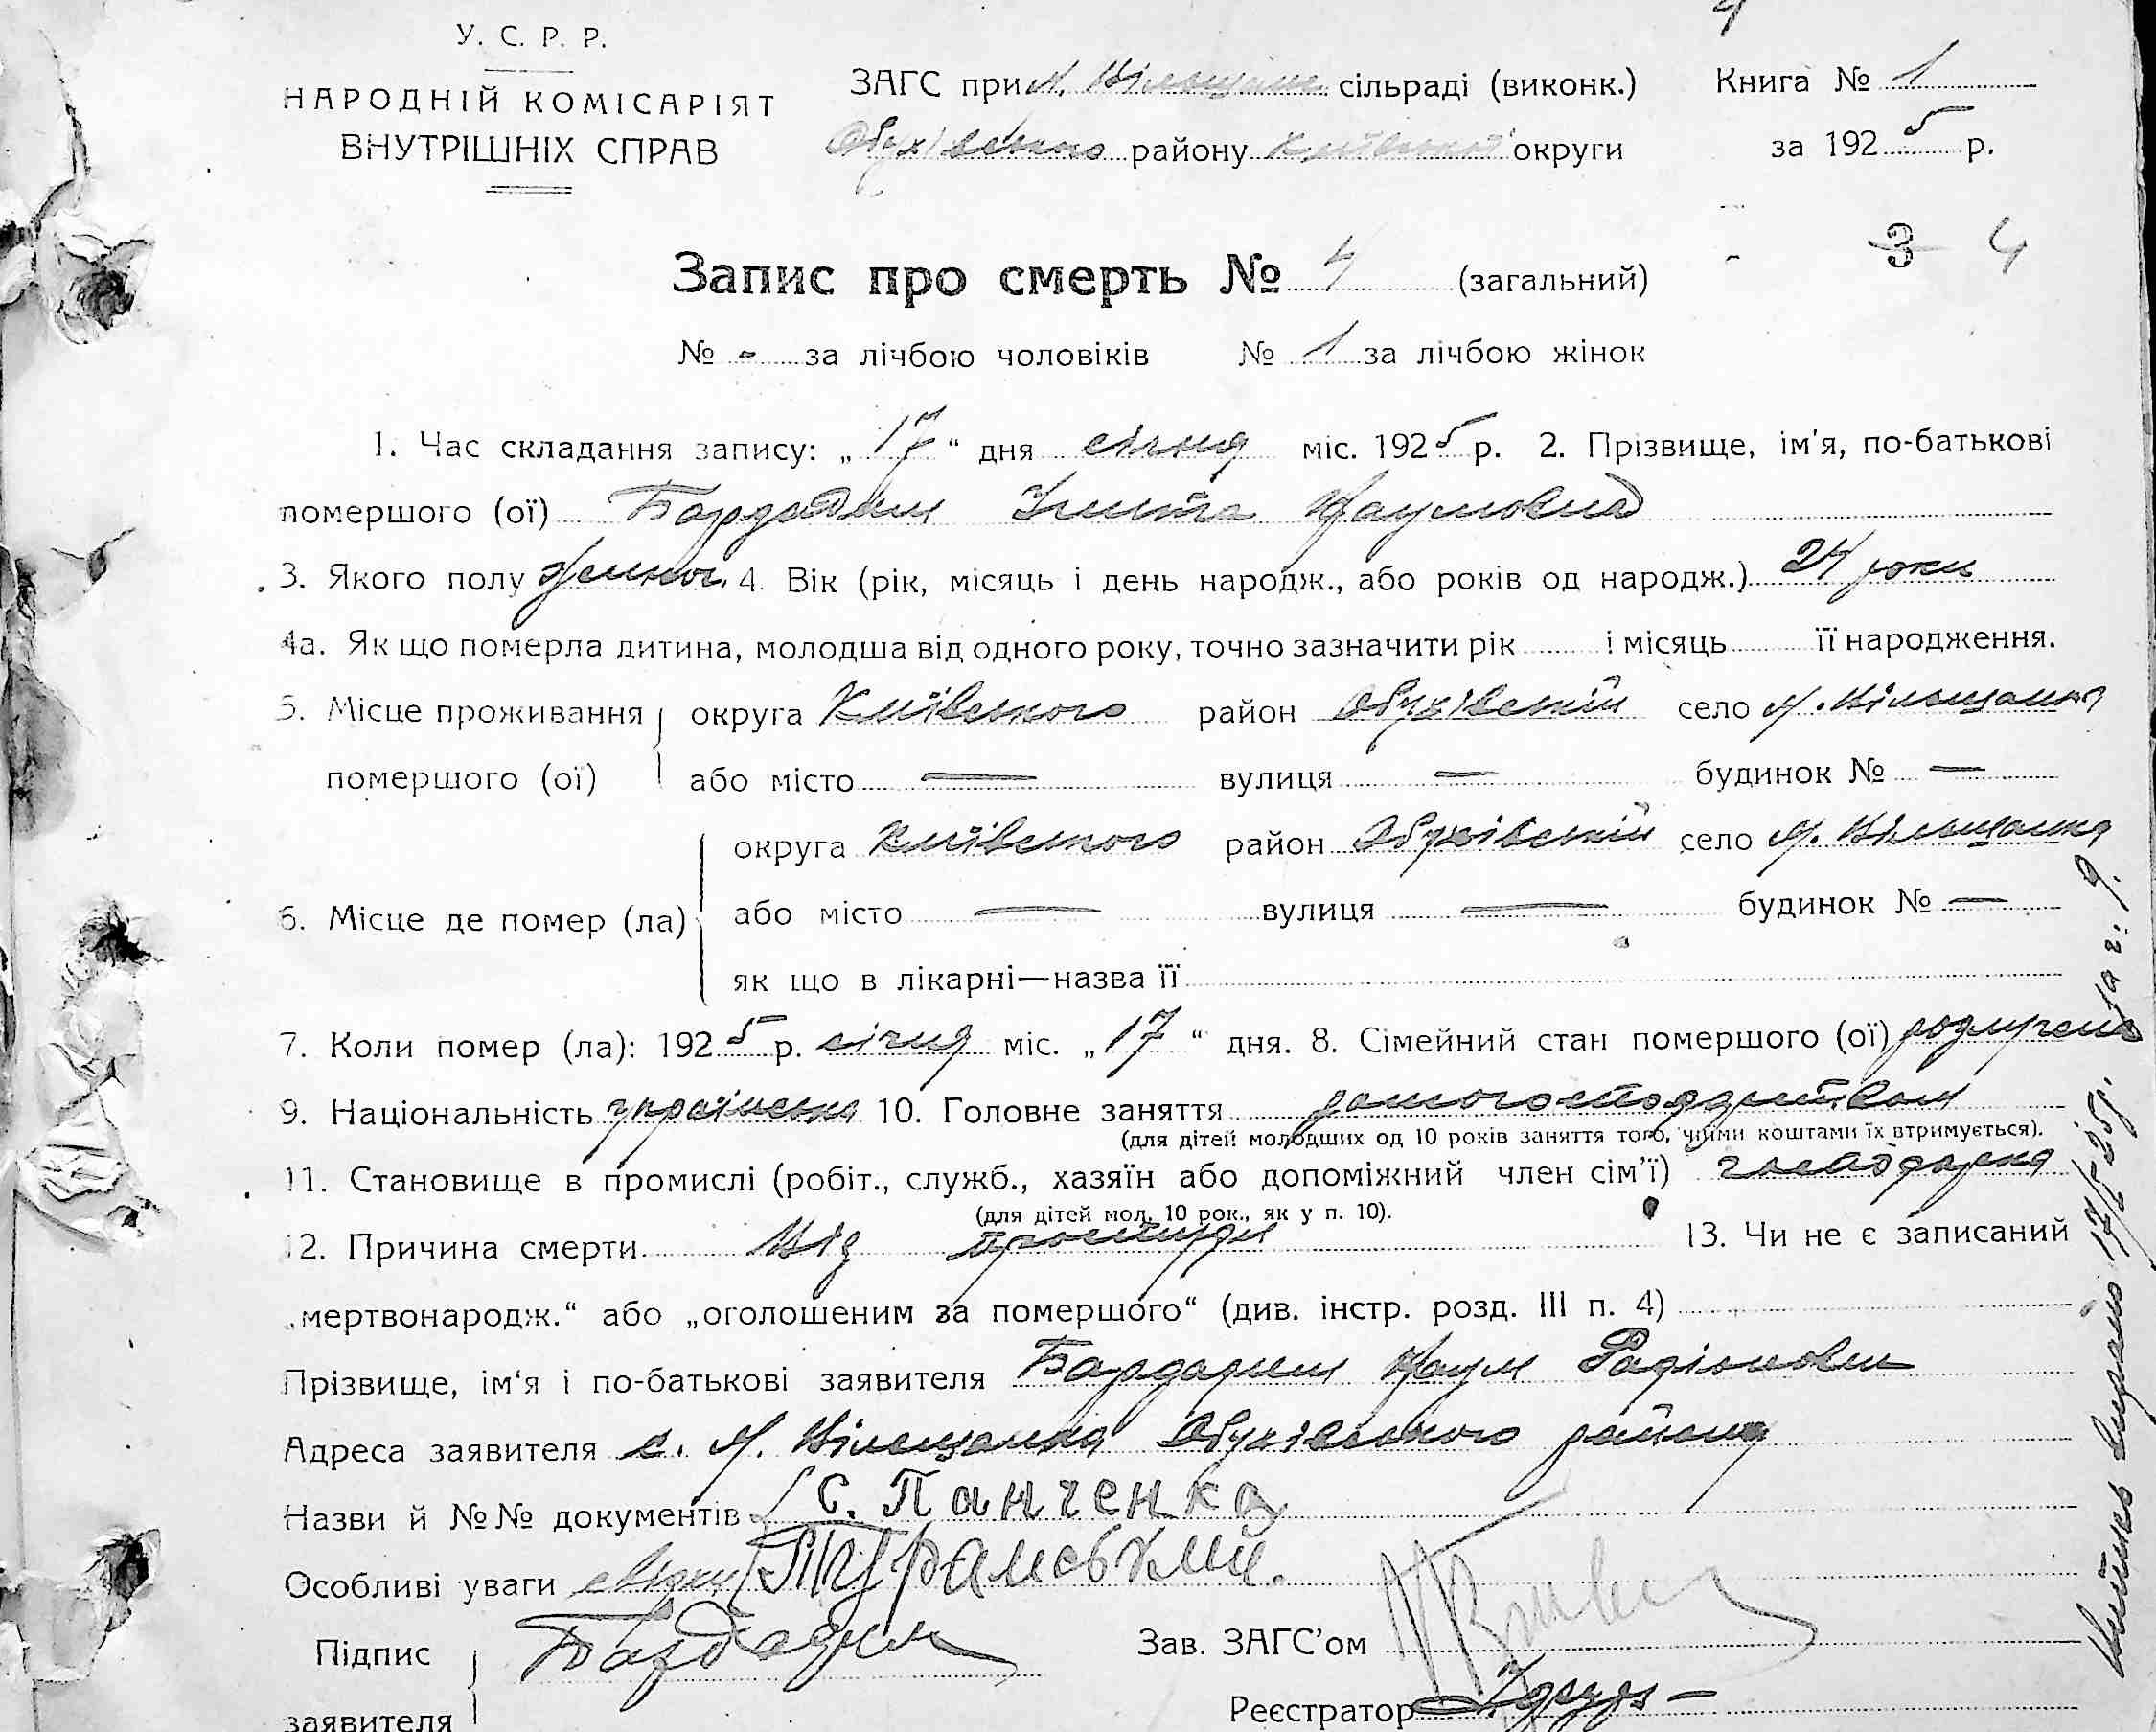 У. С. Р. Р.
НАРОДНІЙ КОМІСАРІЯТ
ВНУТРІШНІХ СПРАВ
ЗАГС при М. Вільшанс. сільраді (виконк.)
Обухівського району Київської округи
Книга № 1
за 1925 р.
3 4
Запис про смерть № 4 (загальний)
№ - за лічбою чоловіків № 1 за лічбою жінок
1. Час складання запису: „17“ дня січня міс. 1925 р. 2. Прізвище, ім'я, по-батькові
помершого (ої) Бардадим Наумовна
3. Якого полу женськ. 4. Вік (рік, місяць і день народж., або років од народж.) 24 роки
4а. Як що померла дитина, молодша від одного року, точно зазначити рік і місяць її народження.
5. Місце проживання округа Київського район Обухівский село М. Вільшанка
помершого (ої) або місто — вулиця — будинок № —
округа Київського район Обухівский село М. Вільшанка
6. Місце де помер (ла) або місто — вулиця — будинок № —
як що в лікарні—назва її
7. Коли помер (ла): 1925 р. січня міс. „17“ дня. 8. Сімейний стан помершого (ої)
9. Національність українська 10. Головне заняття
(для дітей молодших од 10 років заняття того, чиїми коштами їх втримується).
11. Становище в промислі (робіт., служб., хазяїн або допоміжний член сім'ї) господарка
(для дітей мол. 10 рок., як у п. 10).
12. Причина смерти Від простуди 13. Чи не є записаний
„мертвонародж.“ або „оголошеним за помершого“ (див. інстр. розд. III п. 4)
Прізвище, ім'я і по-батькові заявителя Бардадим Наум Радіонови
Адреса заявителя с. М. Вільшанка Обухівського району
Назви й №№ документів С. Панченка
Особливі уваги свідки
Підпис Бардадим
заявителя
Зав. ЗАГС'ом
Реєстратор
Витись видано 17/5-25р. за г. 9.